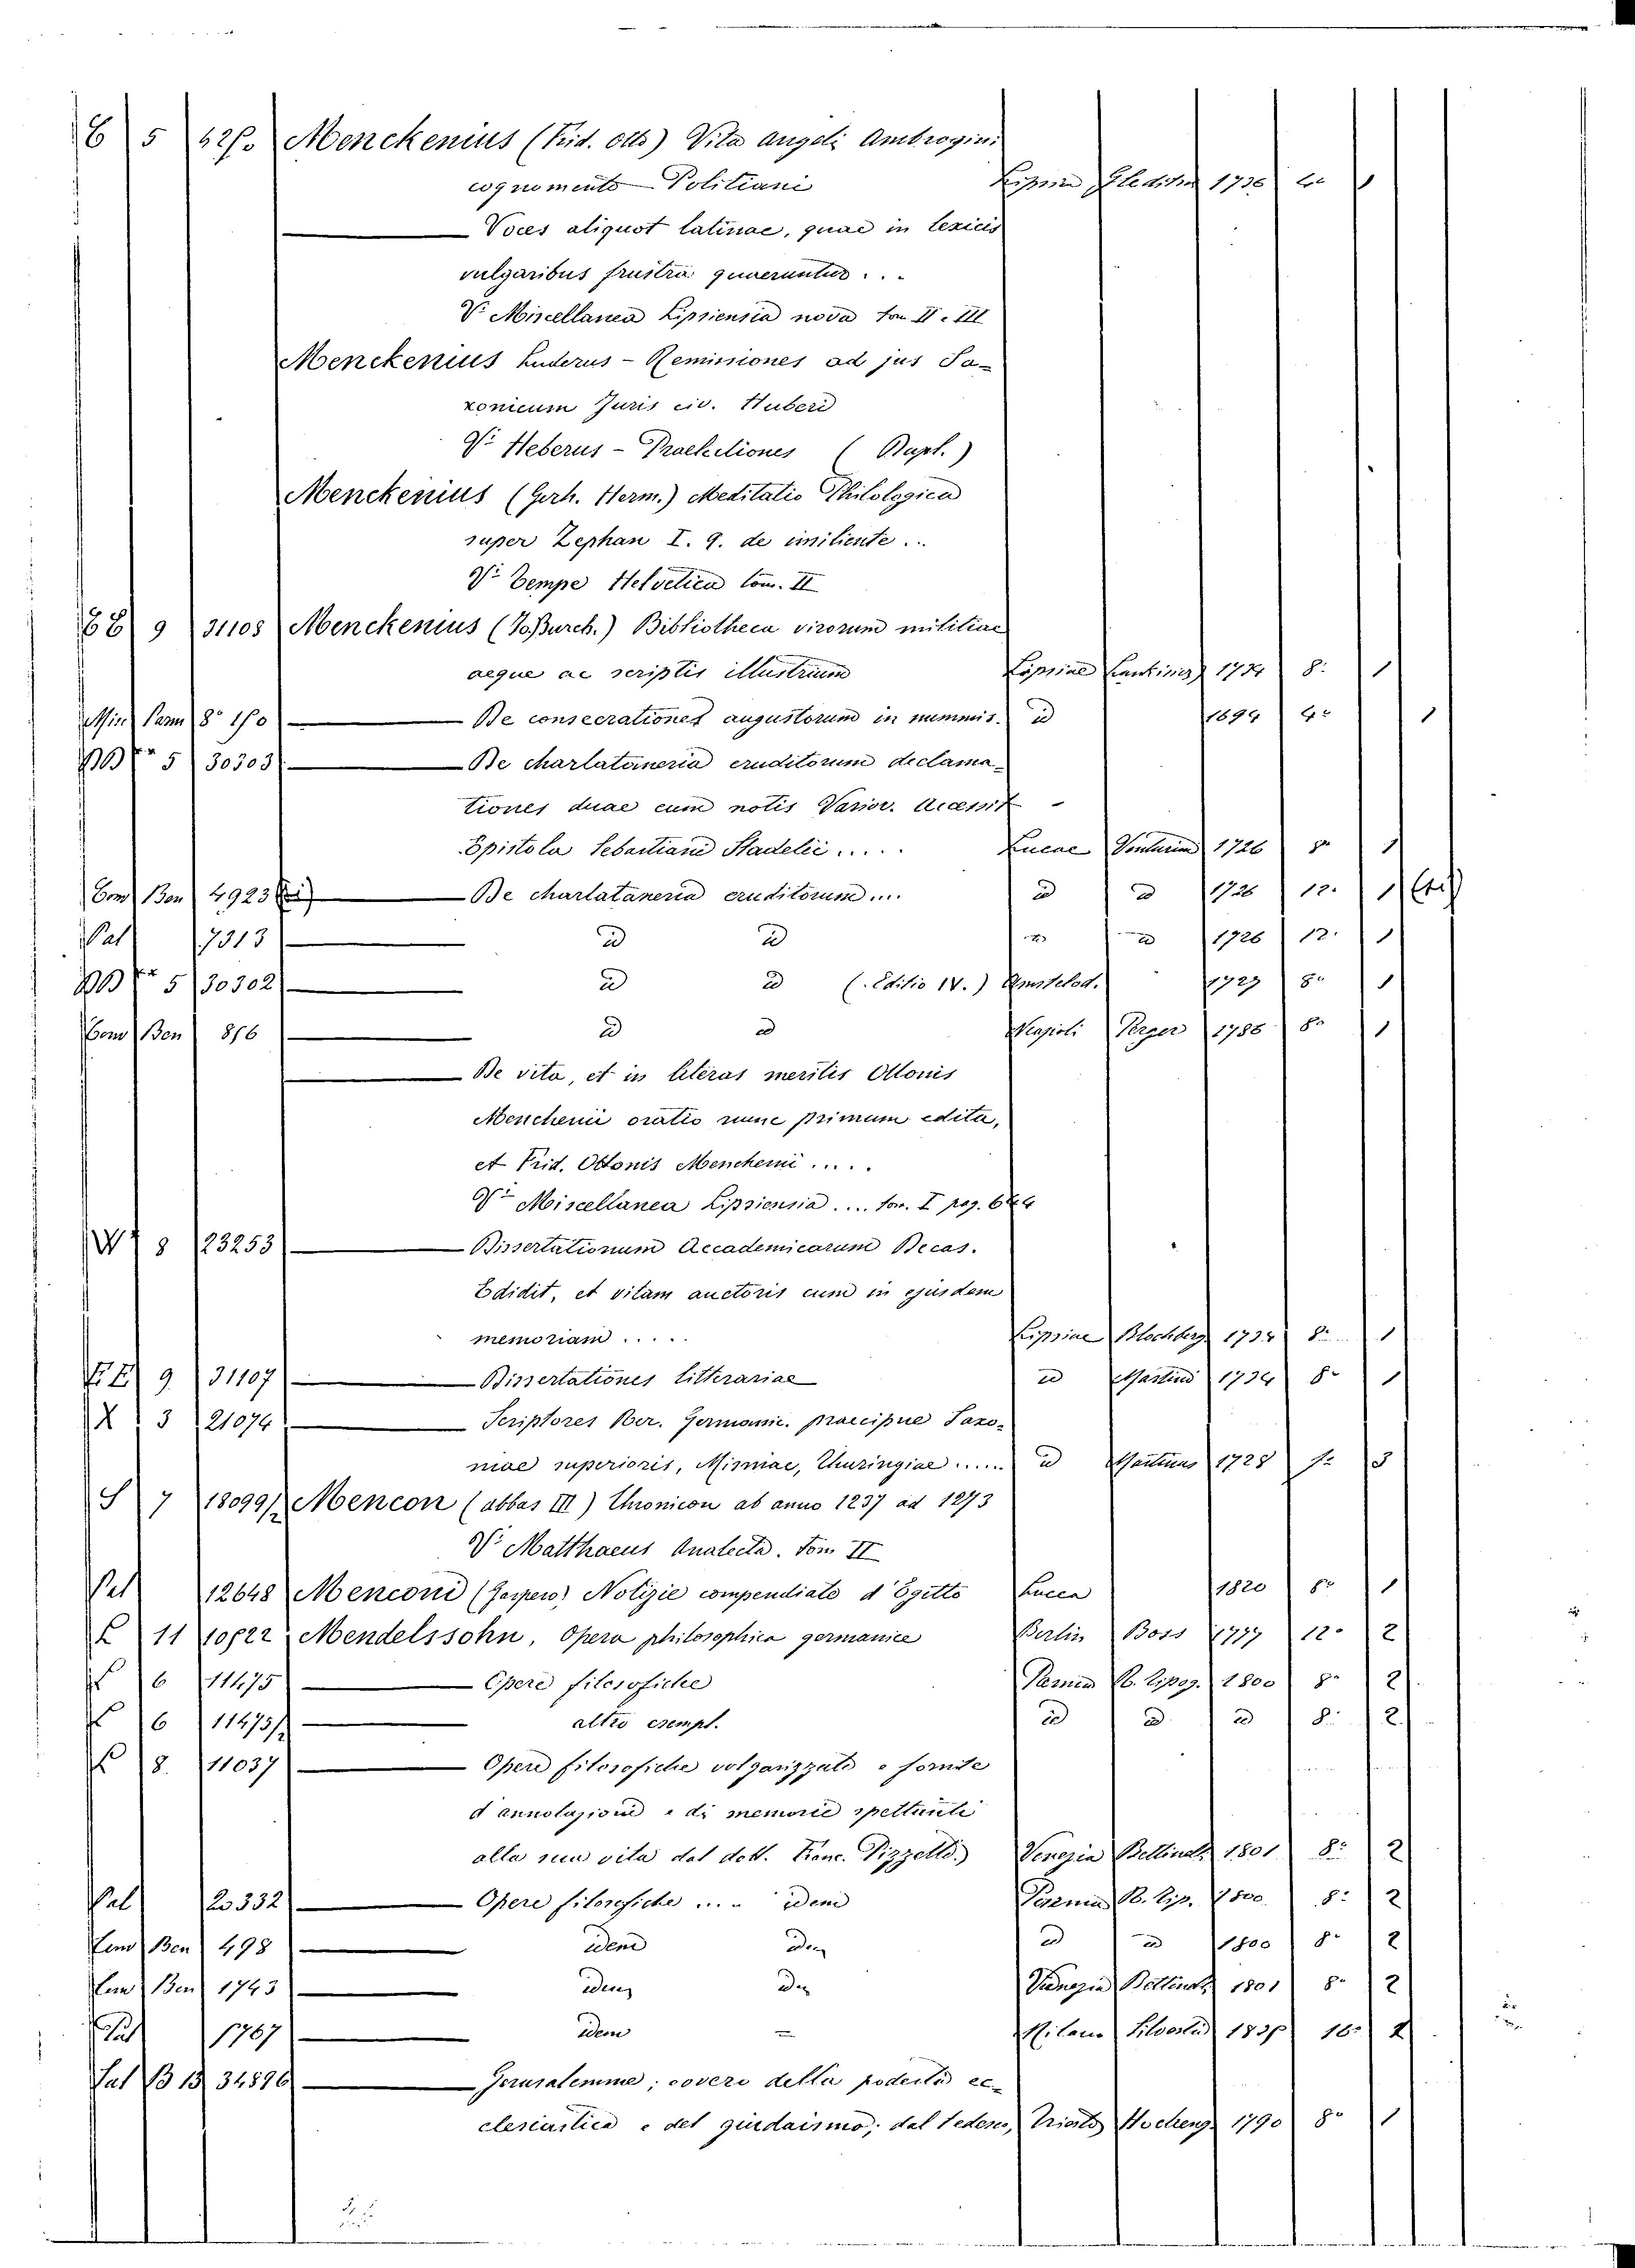 6 5 Menckenius (Frid. Otto) Vita Angeli Ambrogini
cognomento Politiani 4°
Voces aliquot latinae, quae in lexicis
vulgaribus frustra quaeruntur...
V. Miscellanea Lipsiensia nova tom II. III
Menckenius Luderus - Remissiones ad jus Sa-
xonicum Juris civ. Huberi
V. Heberus - Praelectiones ( Rupt. )
Menckenius (Gerh. Herm.) Meditatio Philologica
super Zephan I. 9. de insiliente...
V. Tempe Helvetica tom. II
9 31108 Menckenius (Jo. Burch.) Bibliotheca virorum militiae
aeque ac scriptis illustrium Lipsiae 1734 8° 1
De consecrationes augustorum in nummis. id 1694 4° 1
5 30303 De charlataneria eruditorum declama-
tiones duae cum notis Varior. Accessit
Epistola Sebastiani Stadelii..... Lucae Venturini 1726 8° 1
Com Ben 4923 De charlataneria eruditorum.... id id 1726 12. 1
Pal 7313 id id id id 1726 12. 1
5 30302 id id (Editio IV.) Amstelod. 1727 8° 1
Com Ben 816 id id Neapoli Perger 1786 8° 1
De vita, et in literas meritis Ottonis
Menchenii oratio nunc primum edita,
et Frid. Ottonis Menchenii.....
V. Miscellanea Lipsiensia.... tom. I pag. 644
W 8 23253 Dissertationum Accademicarum Decas.
Edidit, et vitam auctoris cum in ejusdem
memoriam..... Lipsiae Blochberg 1734 8° 1
9 31107 Dissertationes litterariae id Martini 1734 8° 1
X 3 21074 Scriptores Rer. Germanic. praecipue Saxo-
niae superioris, Misniae, Thuringiae..... id Martinus 1728 f° 3
S 7 18099/2 Mencon (abbas III) Chronicon ab anno 1237 ad 1273
V. Matthaeus Analecta. Tom II
Pal 12648 Menconi (Gaspero) Notizie compendiate d'Egitto Lucca 1820 8° 1
11 10522 Mendelssohn, Opera philosophica germanice Berlin Boss 1777 12° 2
6 11475 Opere filosofiche Parma R. tipog. 1800 8° 2
6 11475/2 altro esempl. id id id 8° 2
8. 11037 Opere filosofiche volgarizzate e fornite
d'annotazioni e di memorie spettanti
alla sua vita dal dott. Franc. Pizzetti. Venezia Bettinelli 1801 8° 2
Pal 20332 Opere filosofiche.... idem Parma R. tip. 1800 8° 2
Com Ben 498 idem idem id id 1800 8° 2
Com Ben 1743 idem idem Venezia Bettinelli 1801 8° 2
Pal 1767 idem Milano Silvestri 18° 2
Sal B 13 34896 Gerusalemme; ovvero della podestà ec-
clesiastica e del giudaismo; dal tedesco, Trieste 1790 8° 1